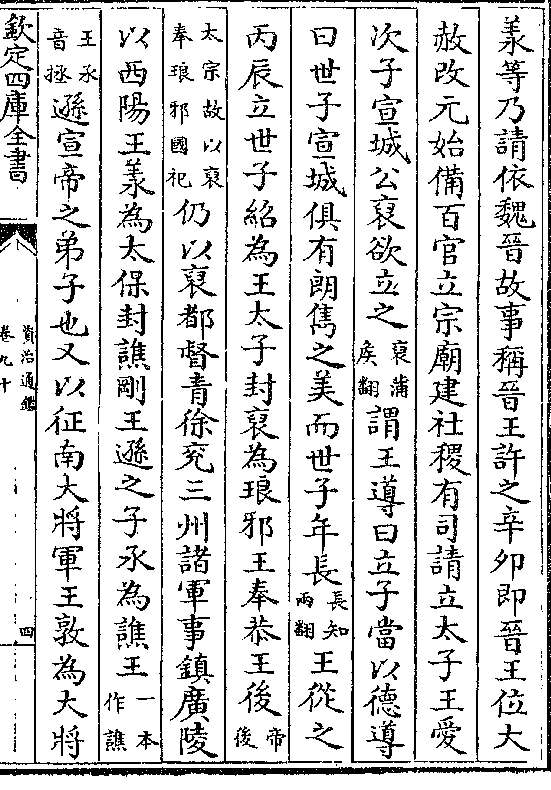 羕等乃請依魏晉故事稱晉王許之辛卯即晉王位大
赦改元始備百官立宗廟建社稷有司請立太子王愛
次子宣城公裒欲立之裒蒲矦翻謂王導曰立子當以德導
曰世子宣城俱有朗雋之美而世子年長長知兩翻王從之
丙辰立世子紹為王太子封裒為琅邪王奉恭王後帝後
太宗故以裒奉琅邪國祀仍以裒都督青徐兗三州諸軍事鎮廣陵
以西陽王羕為太保封譙剛王遜之子承為譙王一本作譙
王承音拯遜宣帝之弟子也又以征南大將軍王敦為大將
欽定四庫全書
資治通鑑
卷九十
四